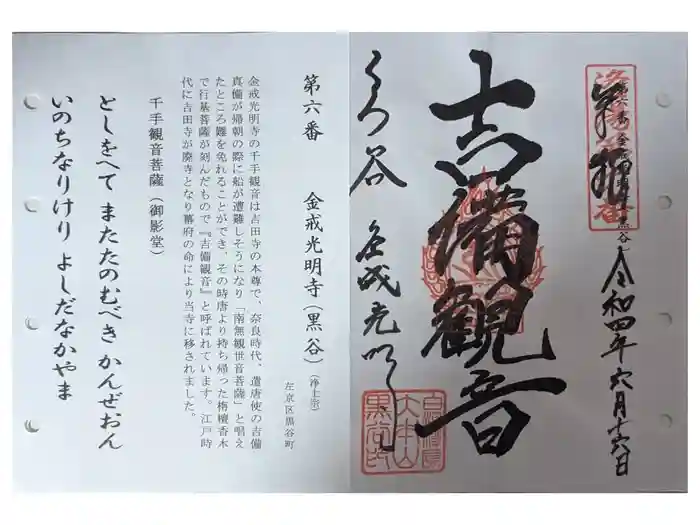 奉拝
第六番 金戒光明寺(黒谷)
令和四年六月十六日
吉備観音
くろ谷 金戒光明寺
第六番 金戒光明寺(黒谷)(浄土宗)
左京区黒谷町
金戒光明寺の千手観音は吉田寺の本尊で、奈良時代、遣唐使の吉備
真備が帰朝の際に船が遭難しそうになり「南無観世音菩薩」と唱え
たところ難を免れることができ、その時唐より持ち帰った栴檀香木
で行基菩薩が刻んだもので『吉備観音』と呼ばれています。江戸時
代に吉田寺が廃寺となり幕府の命により当寺に移されました。
千手観音菩薩(御影堂)
としをへて またたのむべき かんぜおん
いのちなりけり よしだなかやま